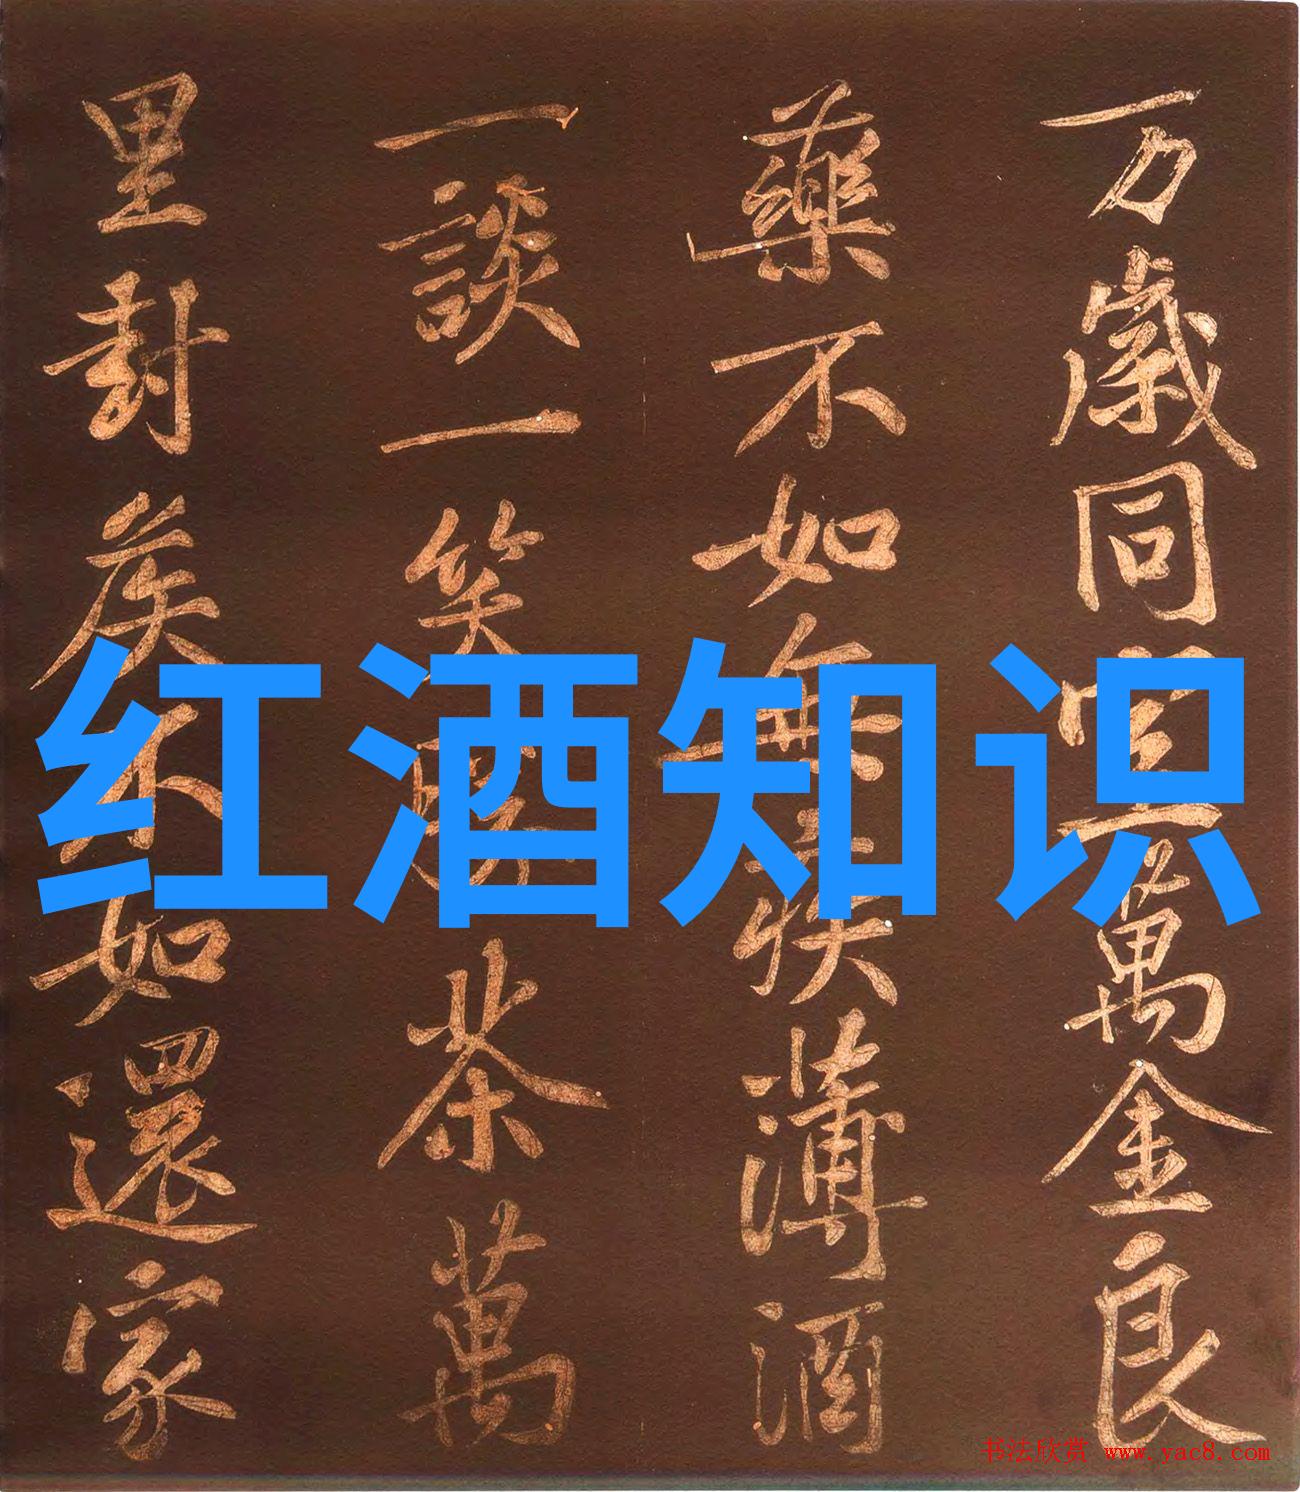 万歲同堂萬金良
藥不如無疾薄酒
一談一笑勝茶萬
里封侯不如還家
红酒知识
书法欣赏 www.yac8.com